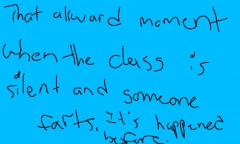 That akward moment
when the class is
silent and someone
farts. It's happened
before.